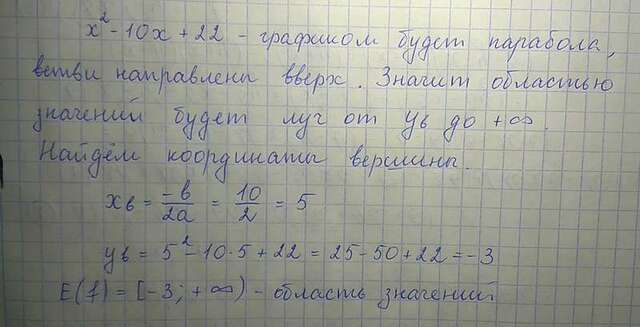 x² - 10x + 22 - графиком будет парабола,
ветви направлены вверх. Значит областью
значений будет луч от yв до +∞.
Найдём координаты вершины.
xв = -в/2a = 10/2 = 5
yв = 5² - 10·5 + 22 = 25 - 50 + 22 = -3
E(f) = [-3; +∞) - область значений